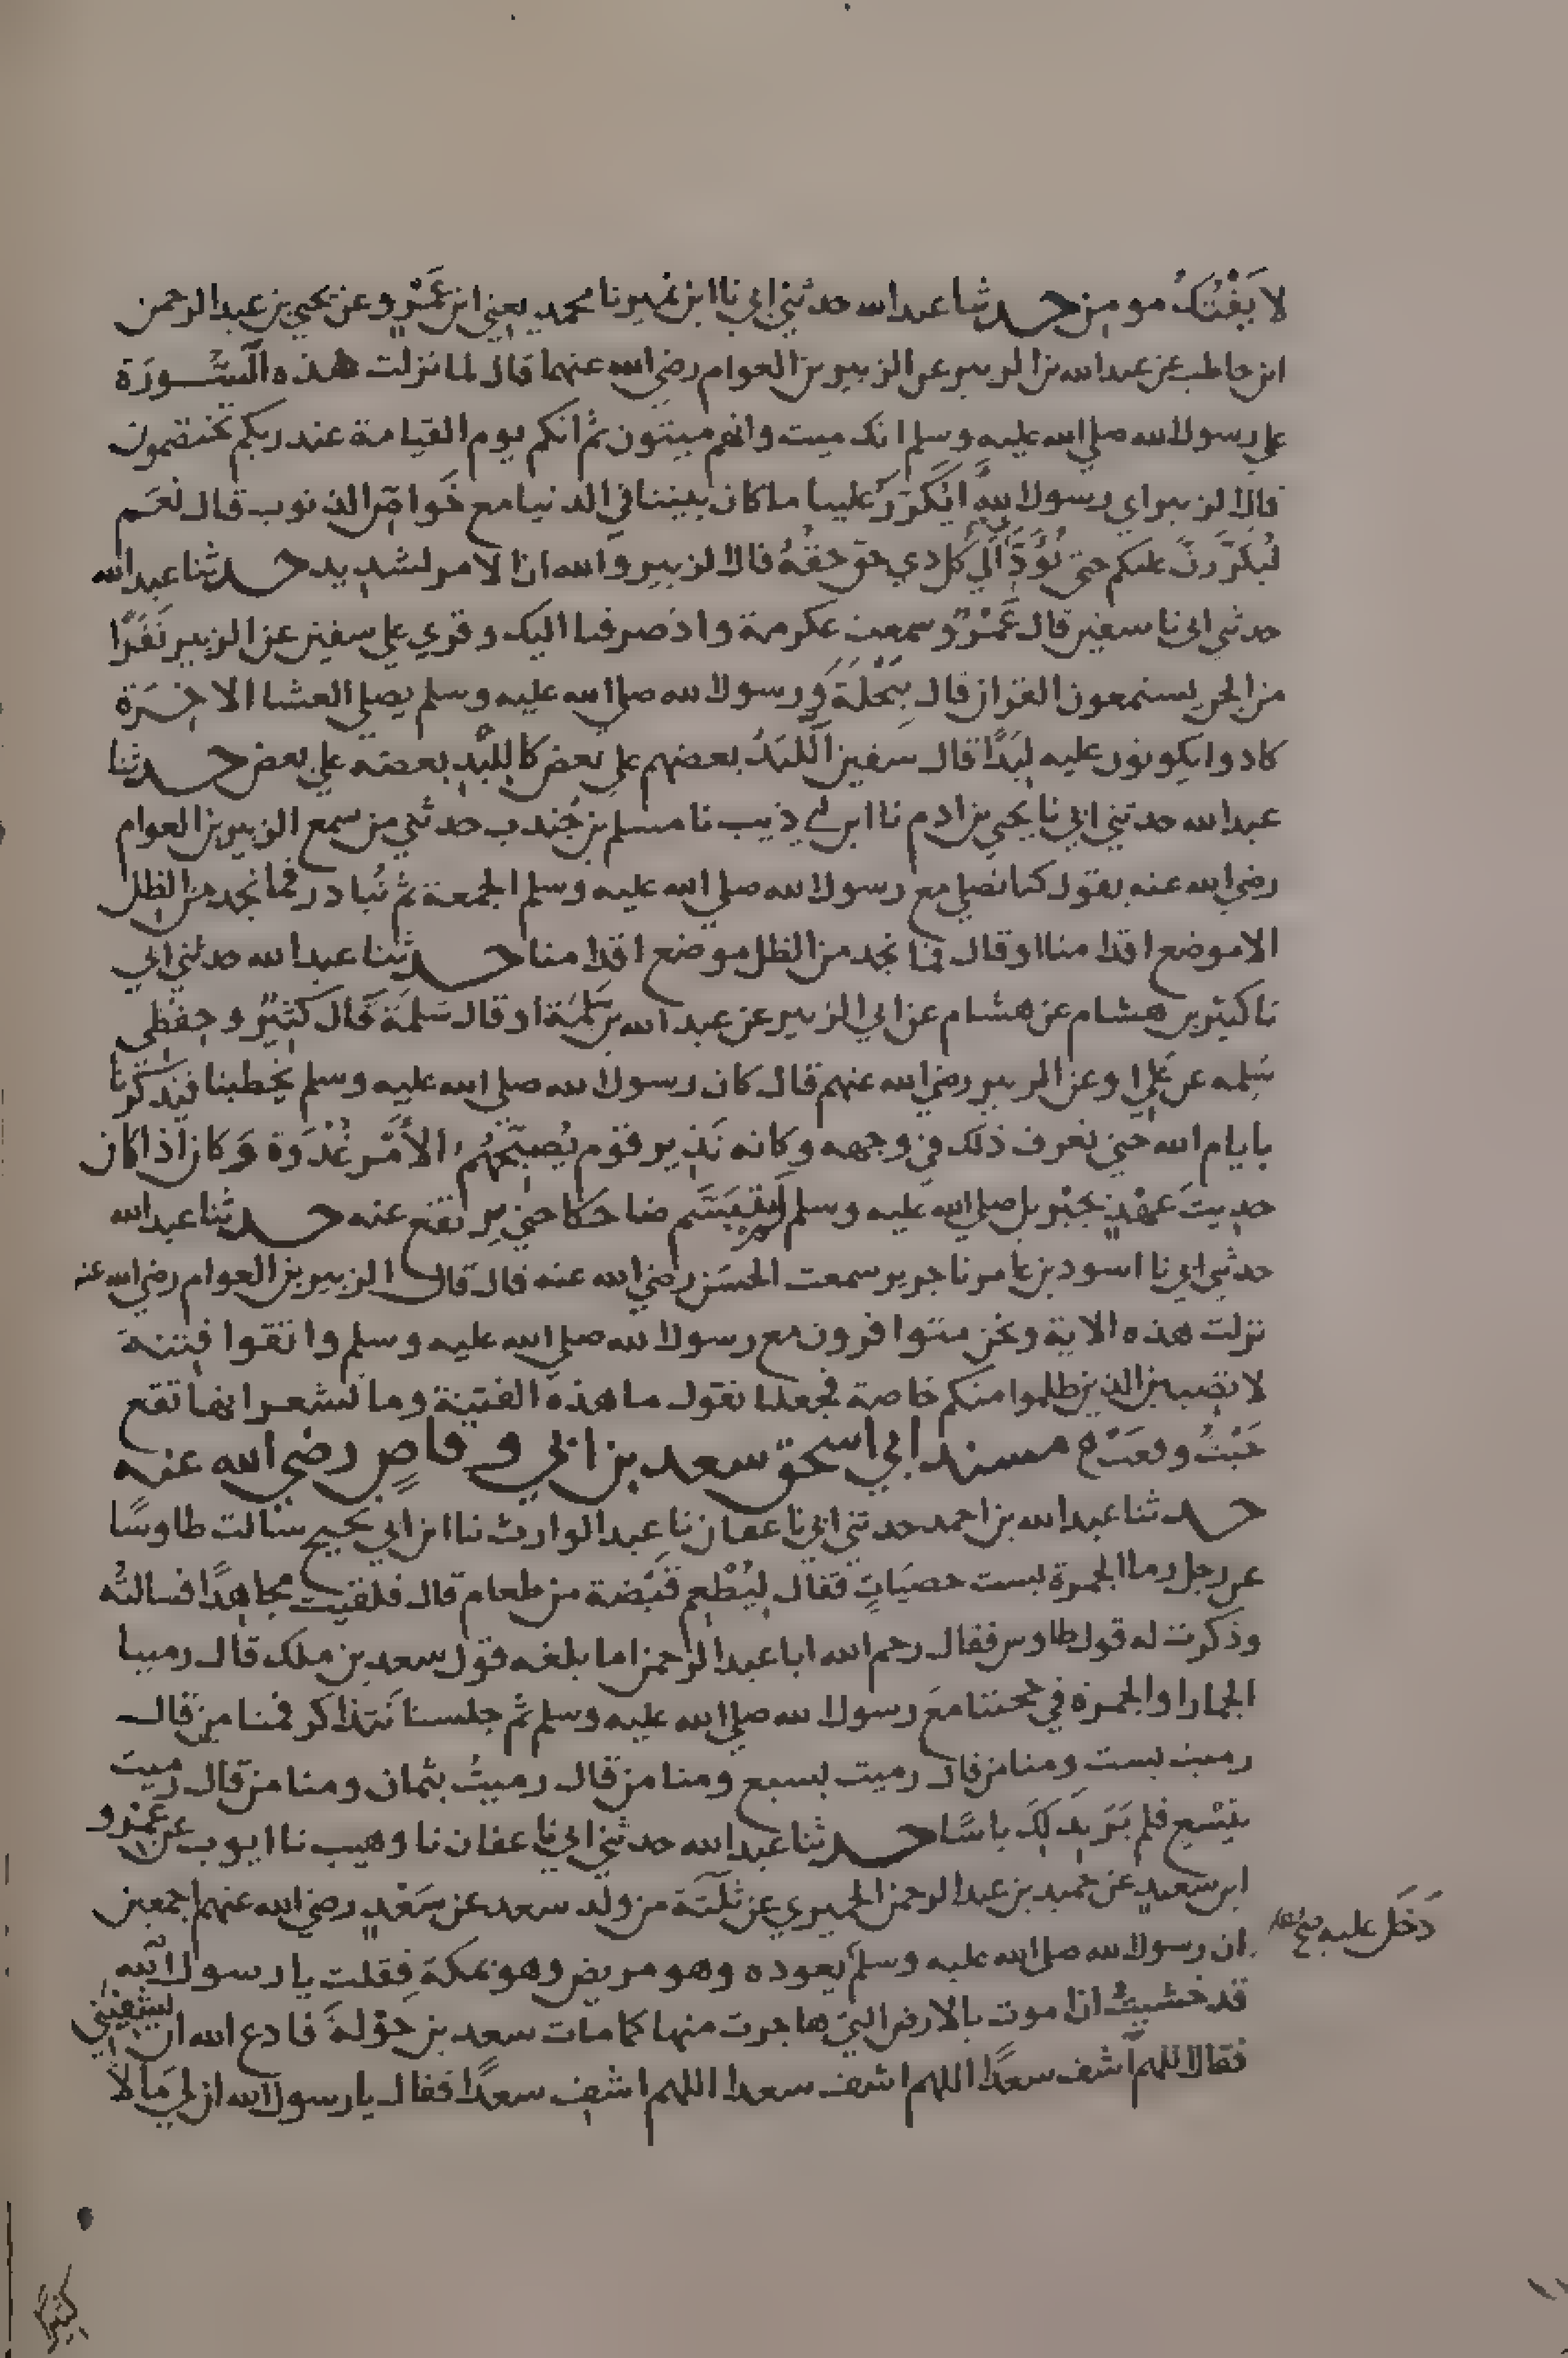 لا يَفْتُكُ مومن حدثنا عبد الله حدثني ابي نا ابن نمير نا محمد يعني ابن عَمْرٍو عن يحيي بن عبد الرحمن
ابن حاطب عن عبد الله بن الزبير عن الزبير بن العوام رضي الله عنهما قال لما نزلت هذه السُّورَة
علي رسول الله صلي الله عليه وسلم انك ميت وانهم ميتون ثم انكم يوم القيامة عند ربكم تختصمون
قال الزبير اي رسول الله ايُكَرَّرُ علينا ما كان بيننا في الدنيا مع خَواصِّ الذنوب قال نَعَم
لَيُكَرَّرَنَّ عليكم حتي يُؤَدَّي الي كل ذي حق حقُّهُ قال الزبير والله ان الامر لشديد حدثنا عبد الله
حدثني ابي نا سفين قال عَمْرٌو سمعت عكرمة واذ صرفنا اليك وقري علي سفين عن الزبير نَفَرًا
من الجن يستمعون القران قال بِنَخْلَةَ ورسول الله صلي الله عليه وسلم يصلي العشا الاخِرَة
كادوا يكونون عليه لِبَدًا قال سفين اللِّبَدُ بعضهم علي بعض كاللِّبَدِ بعضه علي بعض حدثنا
عبد الله حدثني ابي نا يحيي بن ادم نا ابن ابي ذيب نا مسلم بن جُندب حدثني من سمع الزبير بن العوام
رضي الله عنه يقول كنا نصلي مع رسول الله صلي الله عليه وسلم الجمعة ثم نُبادر فما نجد من الظل
الا موضع اقدامنا او قال فما نجد من الظل موضع اقدامنا حدثنا عبد الله حدثني ابي
نا كثير بن هشام عن هشام عن ابي الزبير عن عبد الله بن سَلِمَة او قال سَلمَة قال كَثِيْرٌ وحِفْظِي
سَلِمه عن عَلِيٍّ او عن الزبير رضي الله عنهم قال كان رسول الله صلي الله عليه وسلم يخطبنا فيُذَكِّرُنا
بايام الله حتي نعرف ذلك في وجهه وكانه نَذِير قوم يُصَبِّحُهُمُ الأَمْر غُدْوَة وَكان اذا كان
حديثَ عهْدٍ بجبْريل صلي الله عليه وسلم لم يتبَسَّم ضاحكا حتي يرتفع عنه حدثنا عبد الله
حدثني ابي نا اسود بن عامر نا جرير سمعت الحسن رضي الله عنه قال قال الزبير بن العوام رضي الله عنه
نزلت هذه الاية ونحن متوافرون مع رسول الله صلي الله عليه وسلم واتقوا فتنة
لا تصيبن الذين ظلموا منكم خاصة فجعلنا نقول ما هذه الفتنة وما نشعر انها تقع
حَيْثُ وقعَتْ مسند ابي اسحق سعد بن ابي وقاصٍ رضي الله عنه
حدثنا عبد الله بن احمد حدثني ابي نا عفان نا عبد الوارث نا ابن ابي نجيح سالت طاوسًا
عن رجل رما الجمرة بست حصيَاتٍ فقال لِيُطْعِم قَبْضة من طعام قال فلقيت مجاهدًا فسالتُه
وذكرت له قول طاوس فقال رحم الله ابا عبد الرحمن اما بلغه قول سعد بن ملك قال رمينا
الجمار او الجمرة في حجتنا مع رسول الله صلي الله عليه وسلم ثم جلسنا نَتَذاكر فمنا مِن قال
رميت بست ومنا من قال رميت بسبع ومنا من قال رميتُ بثمان ومنا من قال رميت
بتِسْع فلم يَرَ بذلكَ باسًا حدثنا عبد الله حدثني ابي نا عفان نا وهيب نا ايوب عن عَمْرو
ابن سَعيدٍ عن حميد بن عبد الرحمن الحميري عن ثلثة من ولد سعد عن سَعْدٍ رضي الله عنهم اجمعين
ان رسول الله صلي الله عليه وسلم يعوده وهو مريض وهو بمكة فقلت يا رسول الله
دَخَل عليه صح
قد خشيتُ ان اموت بالارض التي هاجرت منها كما مات سعد بن خوْلة فادع الله ان يشفيَني
فقال اللهم اشف سعدًا اللهم اشف سعدا اللهم اشف سعدًا فقال يا رسول الله ان لي مَالا
كثيرًا